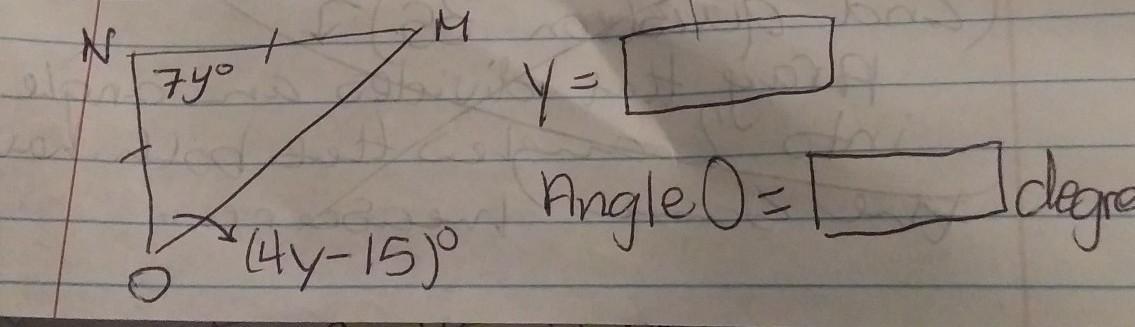 N
M
7y°
y =
Angle O = degre
(4y-15)°
O